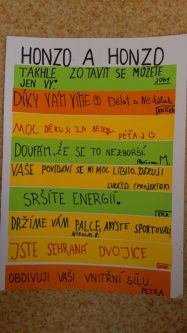 HONZO A HONZO
TAKHLE ZOTAVIT SE MŮŽETE
JEN VY.
DÍKY VÁM VÍME Dělat a Nedělat
MOC DĚKUJI ZA BESEDU. PÉŤA J
DOUFÁM, ŽE SE TO NEZHORŠÍ
M.
VAŠE POVÍDÁNÍ SE MI MOC LÍBILO. DĚKUJI
LUKÁŠ D. (PROJEKTOR)
SRŠÍTE ENERGIÍ.
DRŽÍME VÁM PALCE, ABYSTE SPORTOVALI
JSTE SEHRANÁ DVOJICE
OBDIVUJI VAŠI VNITŘNÍ SÍLU.
PETRA